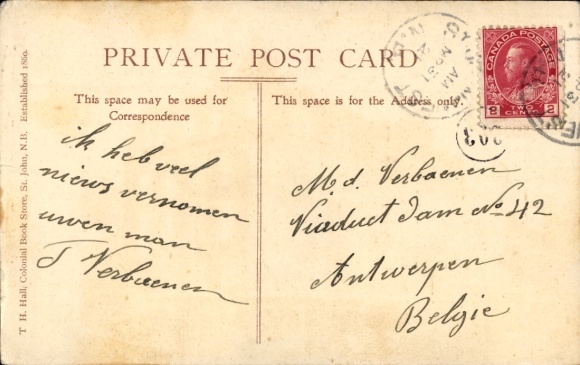 PRIVATE POST CARD
This space may be used for
Correspondence
This space is for the Address only.
CANADA POSTAGE
2 TWO CENTS 2
AM
203
ik heb veel
niews vernomen
uwen man
J Verbaenen
M.d. Verbaenen
Viaduct Dam No 42
Antwerpen
Belgie
T H. Hall, Colonial Book Store, St. John, N.B. Established 1869.